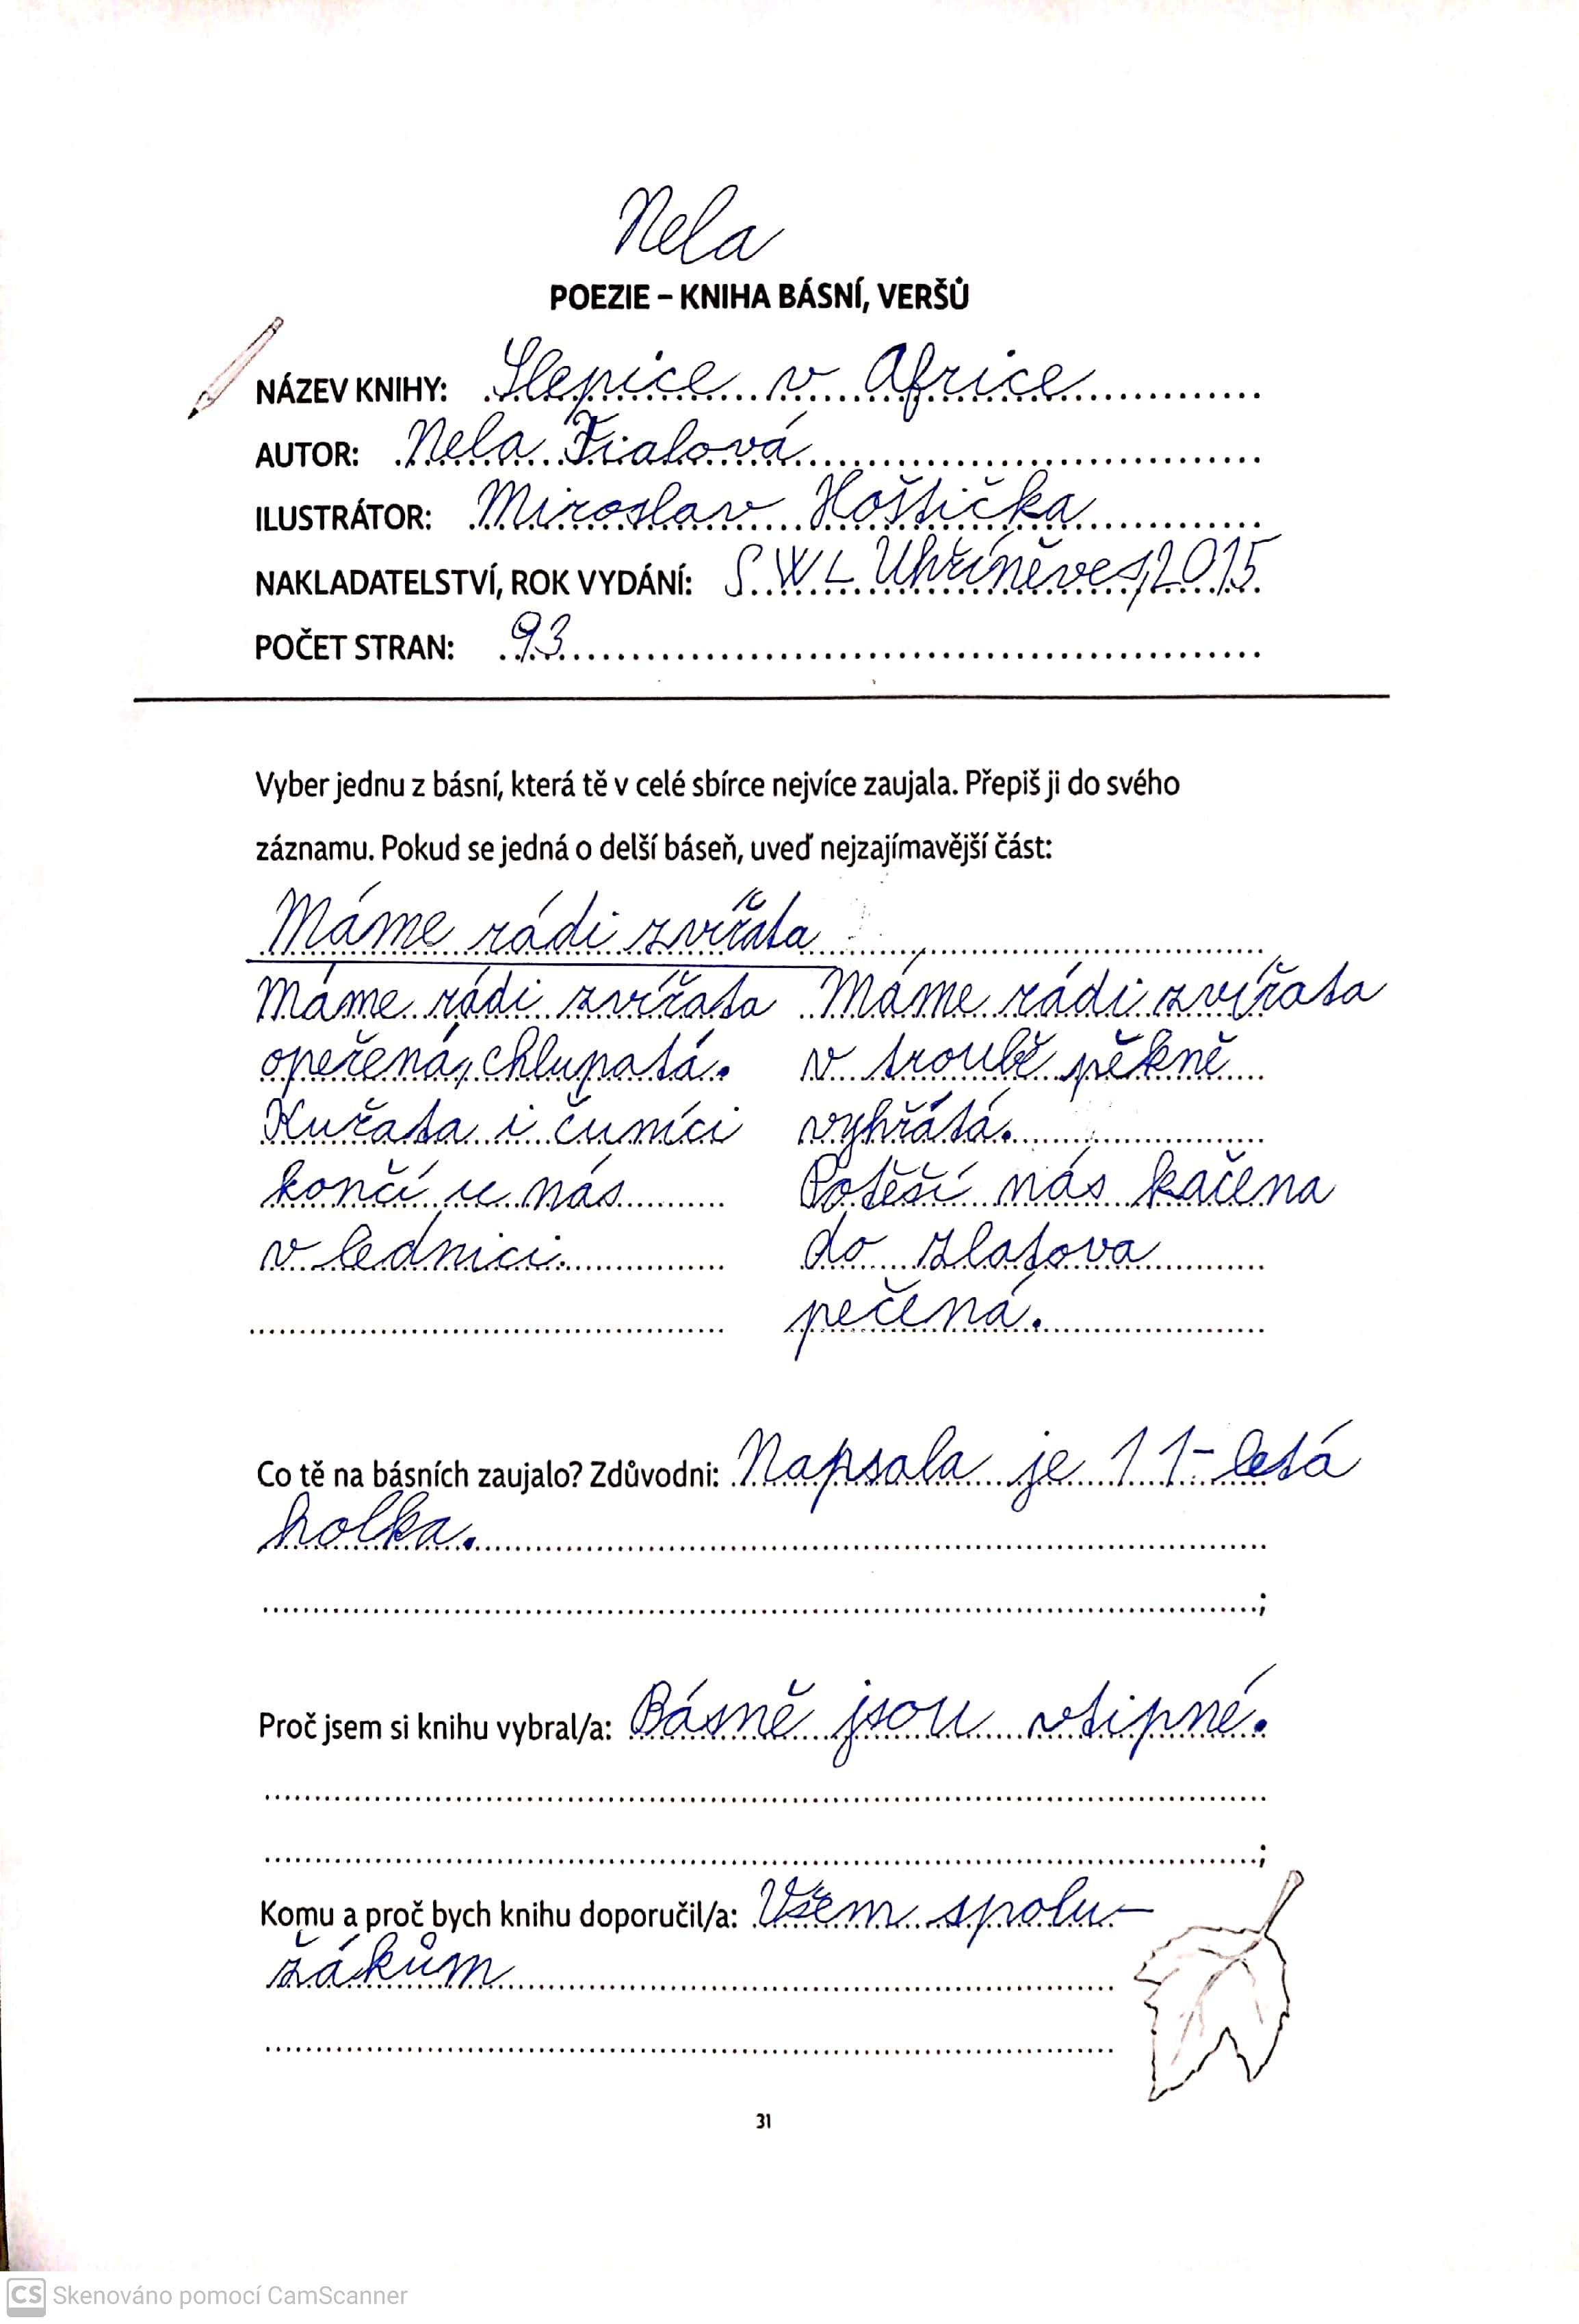 Nela
POEZIE – KNIHA BÁSNÍ, VERŠŮ
NÁZEV KNIHY: Slepice v Africe
AUTOR: Nela Fialová
ILUSTRÁTOR: Miroslav Hoštička
NAKLADATELSTVÍ, ROK VYDÁNÍ: SWL Uhříněves, 2015
POČET STRAN: 93
Vyber jednu z básní, která tě v celé sbírce nejvíce zaujala. Přepiš ji do svého
záznamu. Pokud se jedná o delší báseň, uveď nejzajímavější část:
Máme rádi zvířata
Máme rádi zvířata
opeřená, chlupatá.
Kuřata i čuníci
končí u nás
v lednici.
Máme rádi zvířata
v troubě pěkně
vyhřátá.
Potěší nás kačena
do zlatova
pečená.
Co tě na básních zaujalo? Zdůvodni: Napsala je 11-letá
holka.
;
Proč jsem si knihu vybral/a: Básně jsou vtipné.
;
Komu a proč bych knihu doporučil/a: Všem spolu-
žákům
31
CS Skenováno pomocí CamScanner